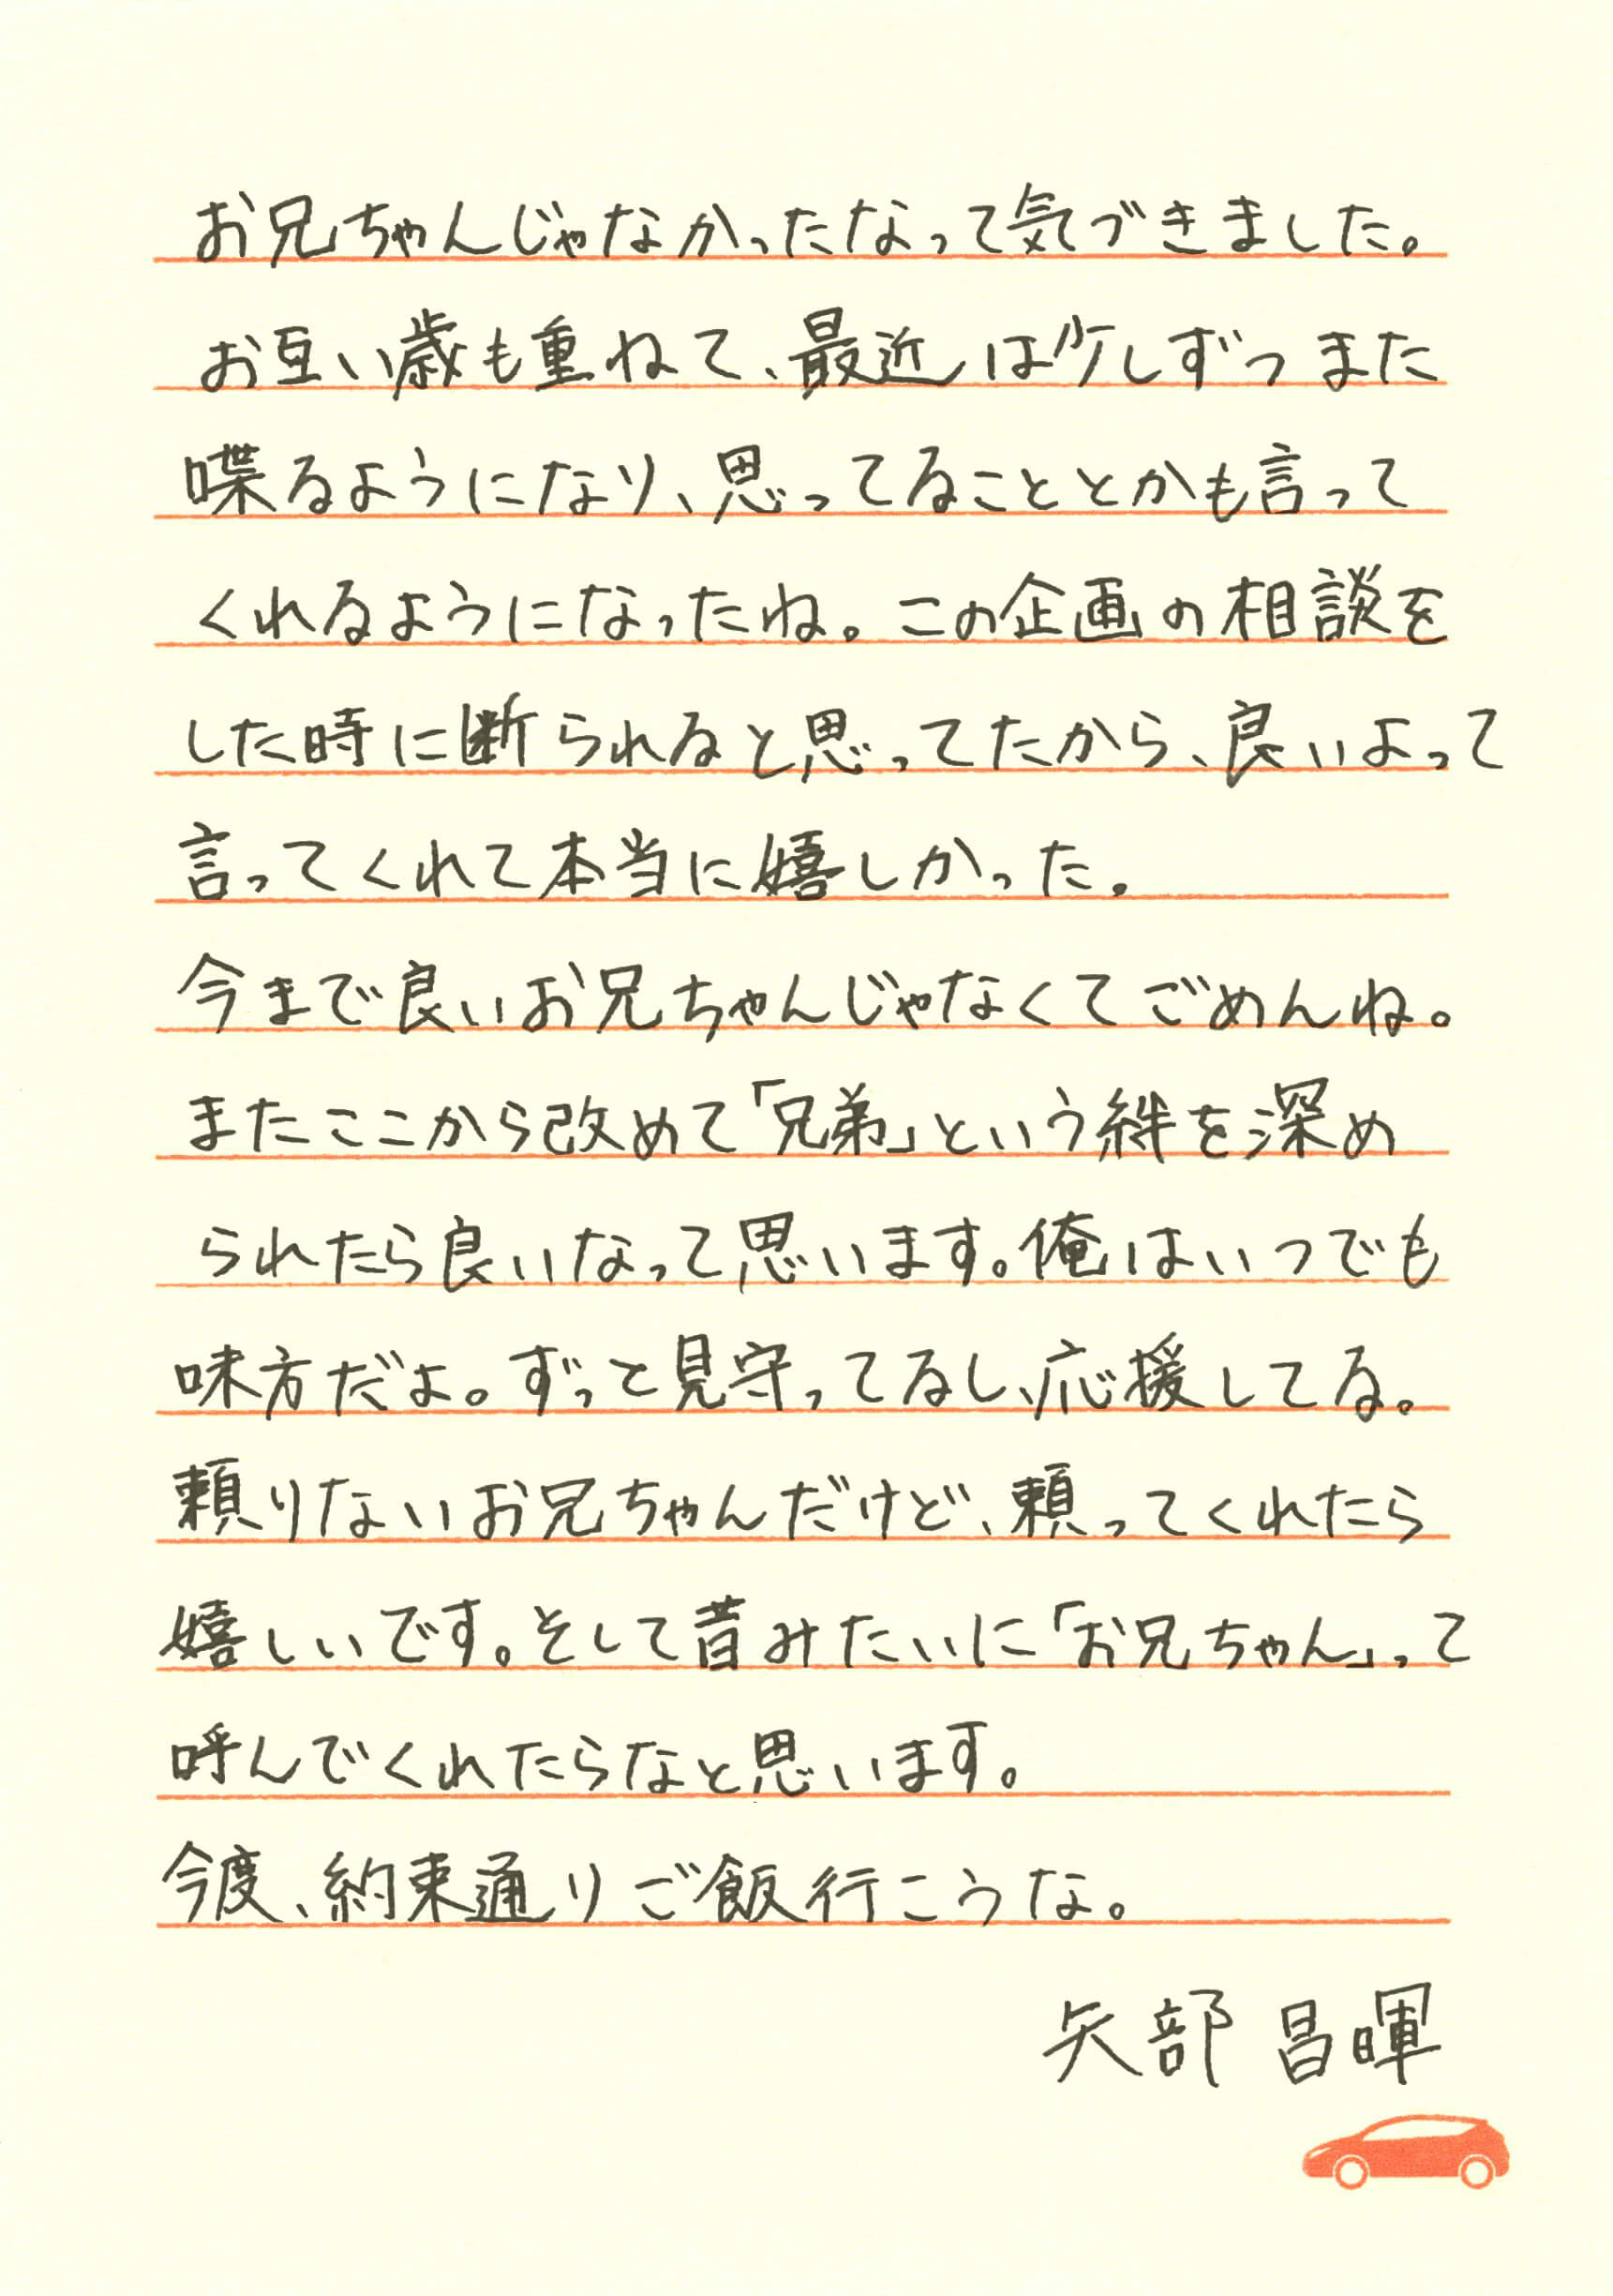 お兄ちゃんじゃなかったなって気づきました。
お互い歳も重ねて、最近は少しずつまた
喋るようになり、思ってることとかも言って
くれるようになったね。この企画の相談を
した時に断られると思ってたから、良いよって
言ってくれて本当に嬉しかった。
今まで良いお兄ちゃんじゃなくてごめんね。
またここから改めて「兄弟」という絆を深め
られたら良いなって思います。俺はいつでも
味方だよ。ずっと見守ってるし、応援してる。
頼りないお兄ちゃんだけど、頼ってくれたら
嬉しいです。そして昔みたいに「お兄ちゃん」って
呼んでくれたらなと思います。
今度、約束通りご飯行こうな。
矢部 昌暉